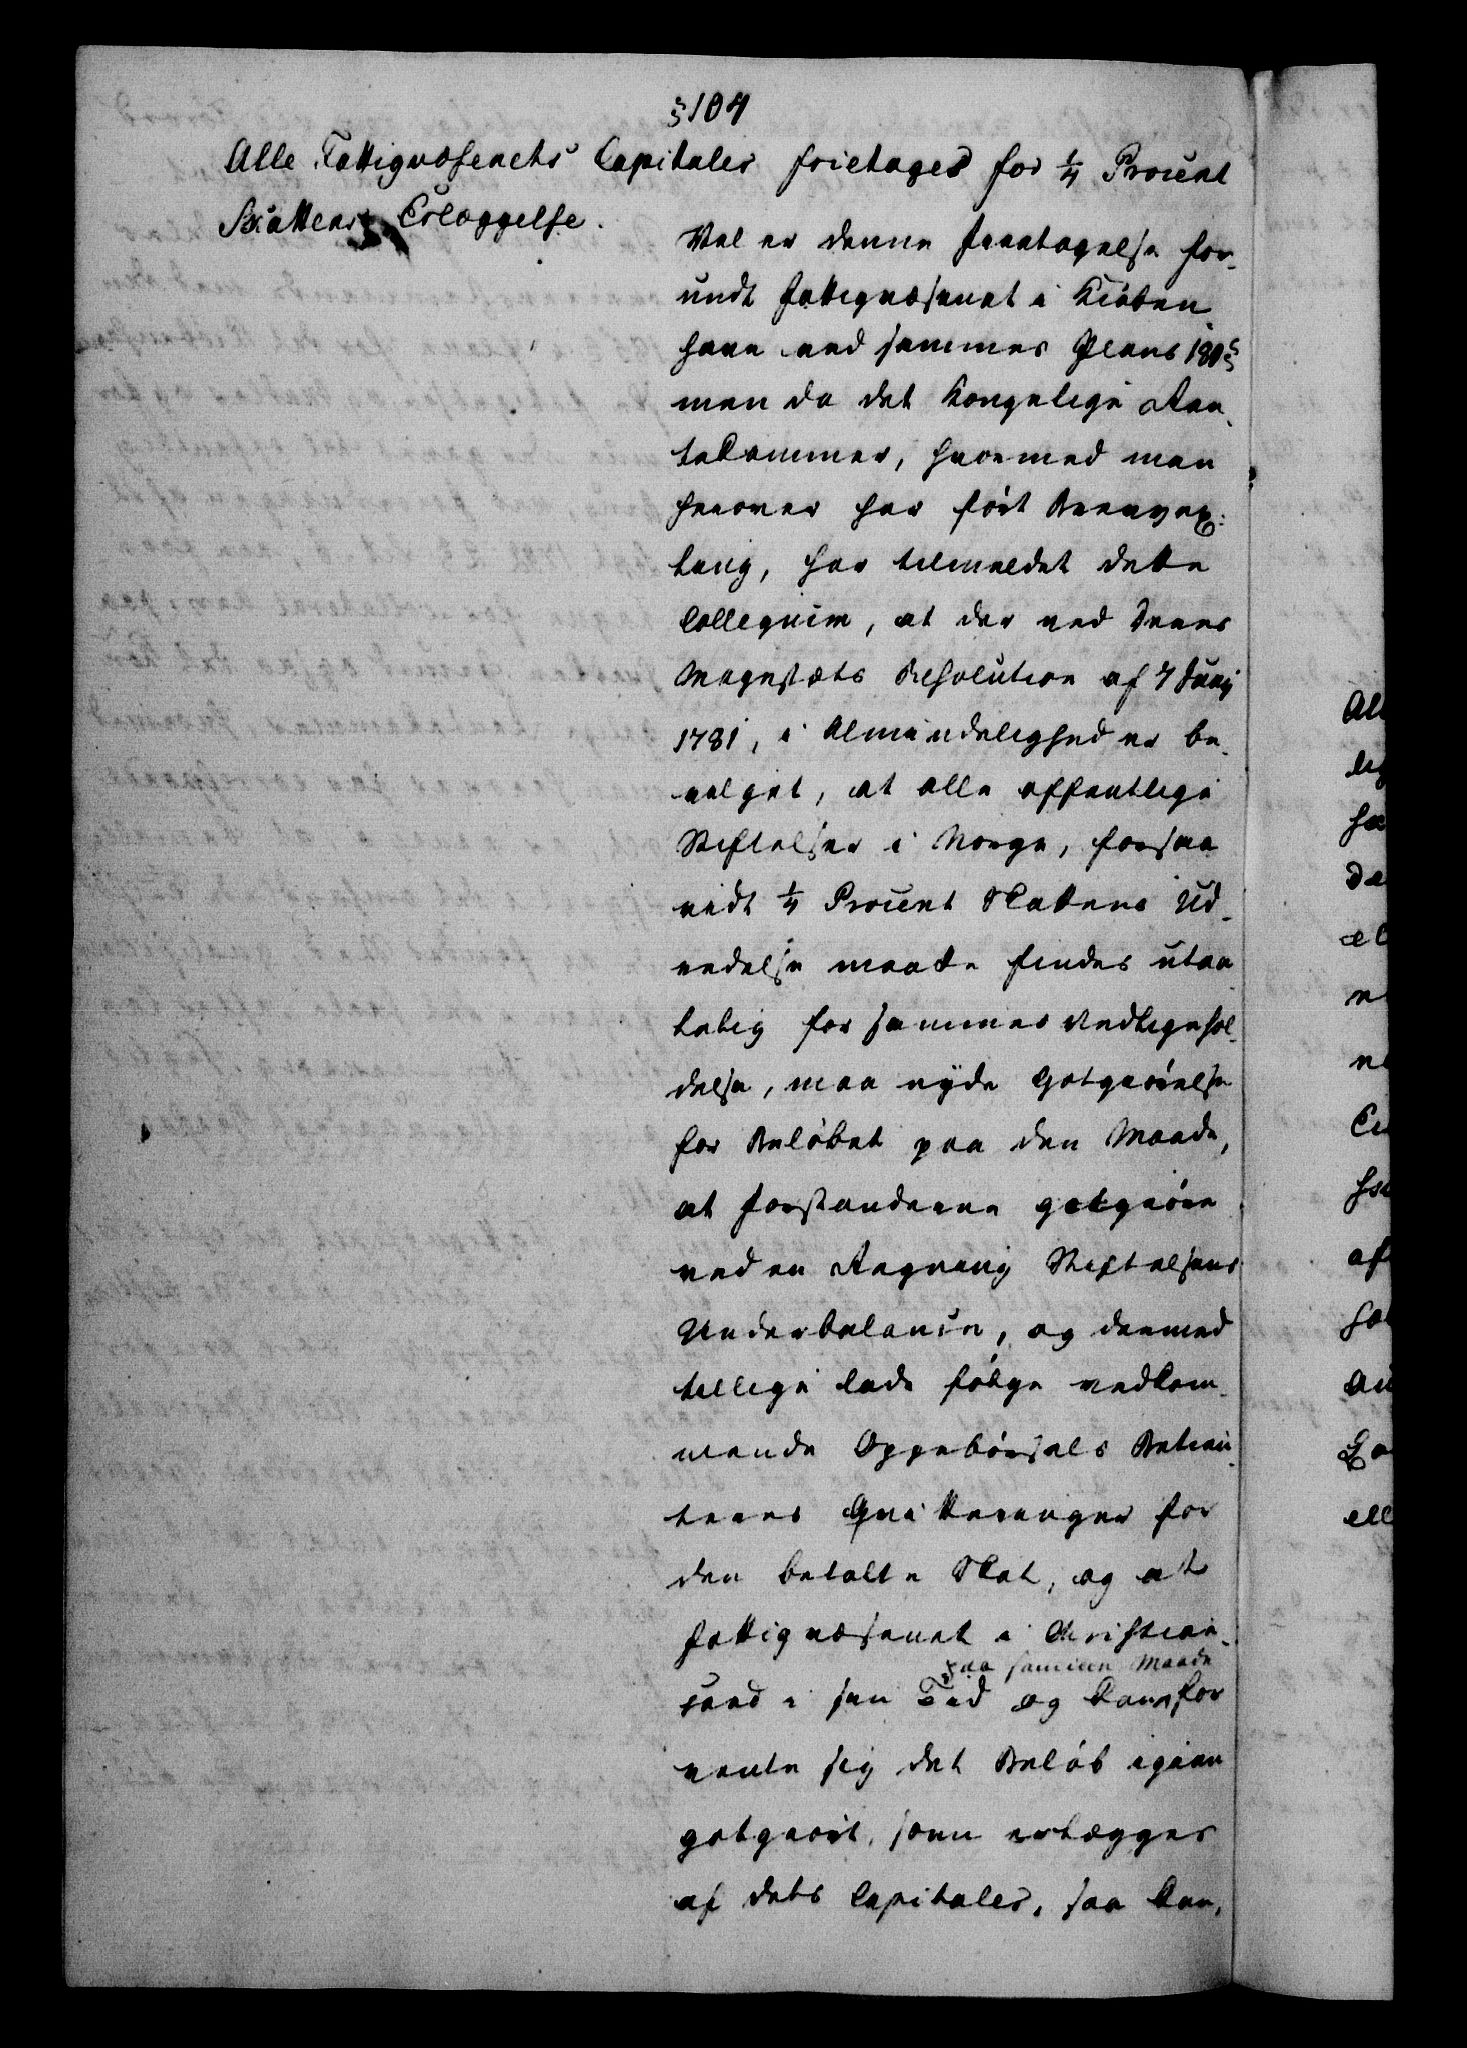 § 104
Alle Fattigvæsenets Capitaler frietages for ¼ Procent
Skattens Erlæggelse.
Vel er denne Fritagelse for-
undt Fattigvæsenet i Kiöben-
havn ved sammes Plans 180 §
men da det Kongelige Ren-
tekammer, hvormed man
herover har fört Brevvex-
ling, har tilmeldet dette
Collegium, at der ved Deres
Majestæts Resolution af 7 Junij
1781, i Almindelighed er be-
vilget, at alle offentlige
Stiftelser i Norge, forsaa-
vidt ¼ Procent Skattens Ud-
redelse maatte findes utaa-
lelig for sammes Vedligehol-
delse, maa nyde Godtgiörelse
for Belöbet paa den Maade,
at Forstanderne godtgiöre
ved en Regning Stiftelsens
Underbalance, og dermed
tillige lade fölge vedkom-
mende Oppebörsels Betien-
teres Qvitteringer for
den betalte Skat, og at
Fattigvæsenet i Christian-
sand i sin Tiid og kan for
paa samme Maade
vente sig det Belöb igien
godtgiort, som erlægges
af dets Capitaler, saa kan,
All